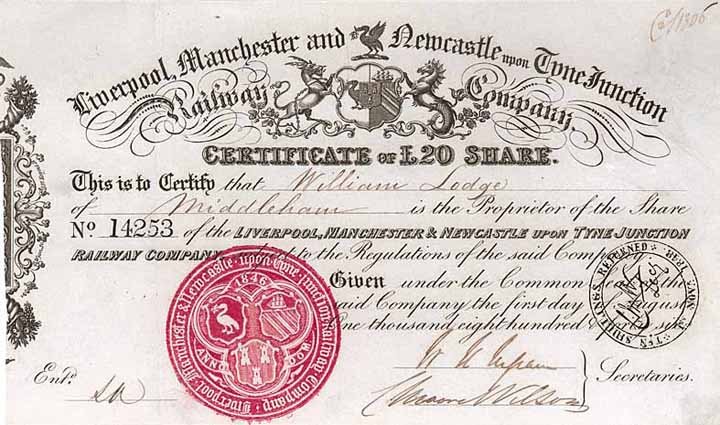 Liverpool, Manchester and Newcastle upon Tyne Junction
Railway Company.
CERTIFICATE OF £20 SHARE.
This is to Certify that William Lodge
of Middleham is the Proprietor of the Share
No 14253 of the LIVERPOOL, MANCHESTER & NEWCASTLE UPON TYNE JUNCTION
RAILWAY COMPANY to the Regulations of the said Company
Given under the Common
said Company the first day of
One thousand eight hundred &
Entd.
Wilson
Secretaries.
Liverpool, Manchester & Newcastle upon Tyne Junction Railway Company
1846
TEN SHILLINGS RETURNED
1306